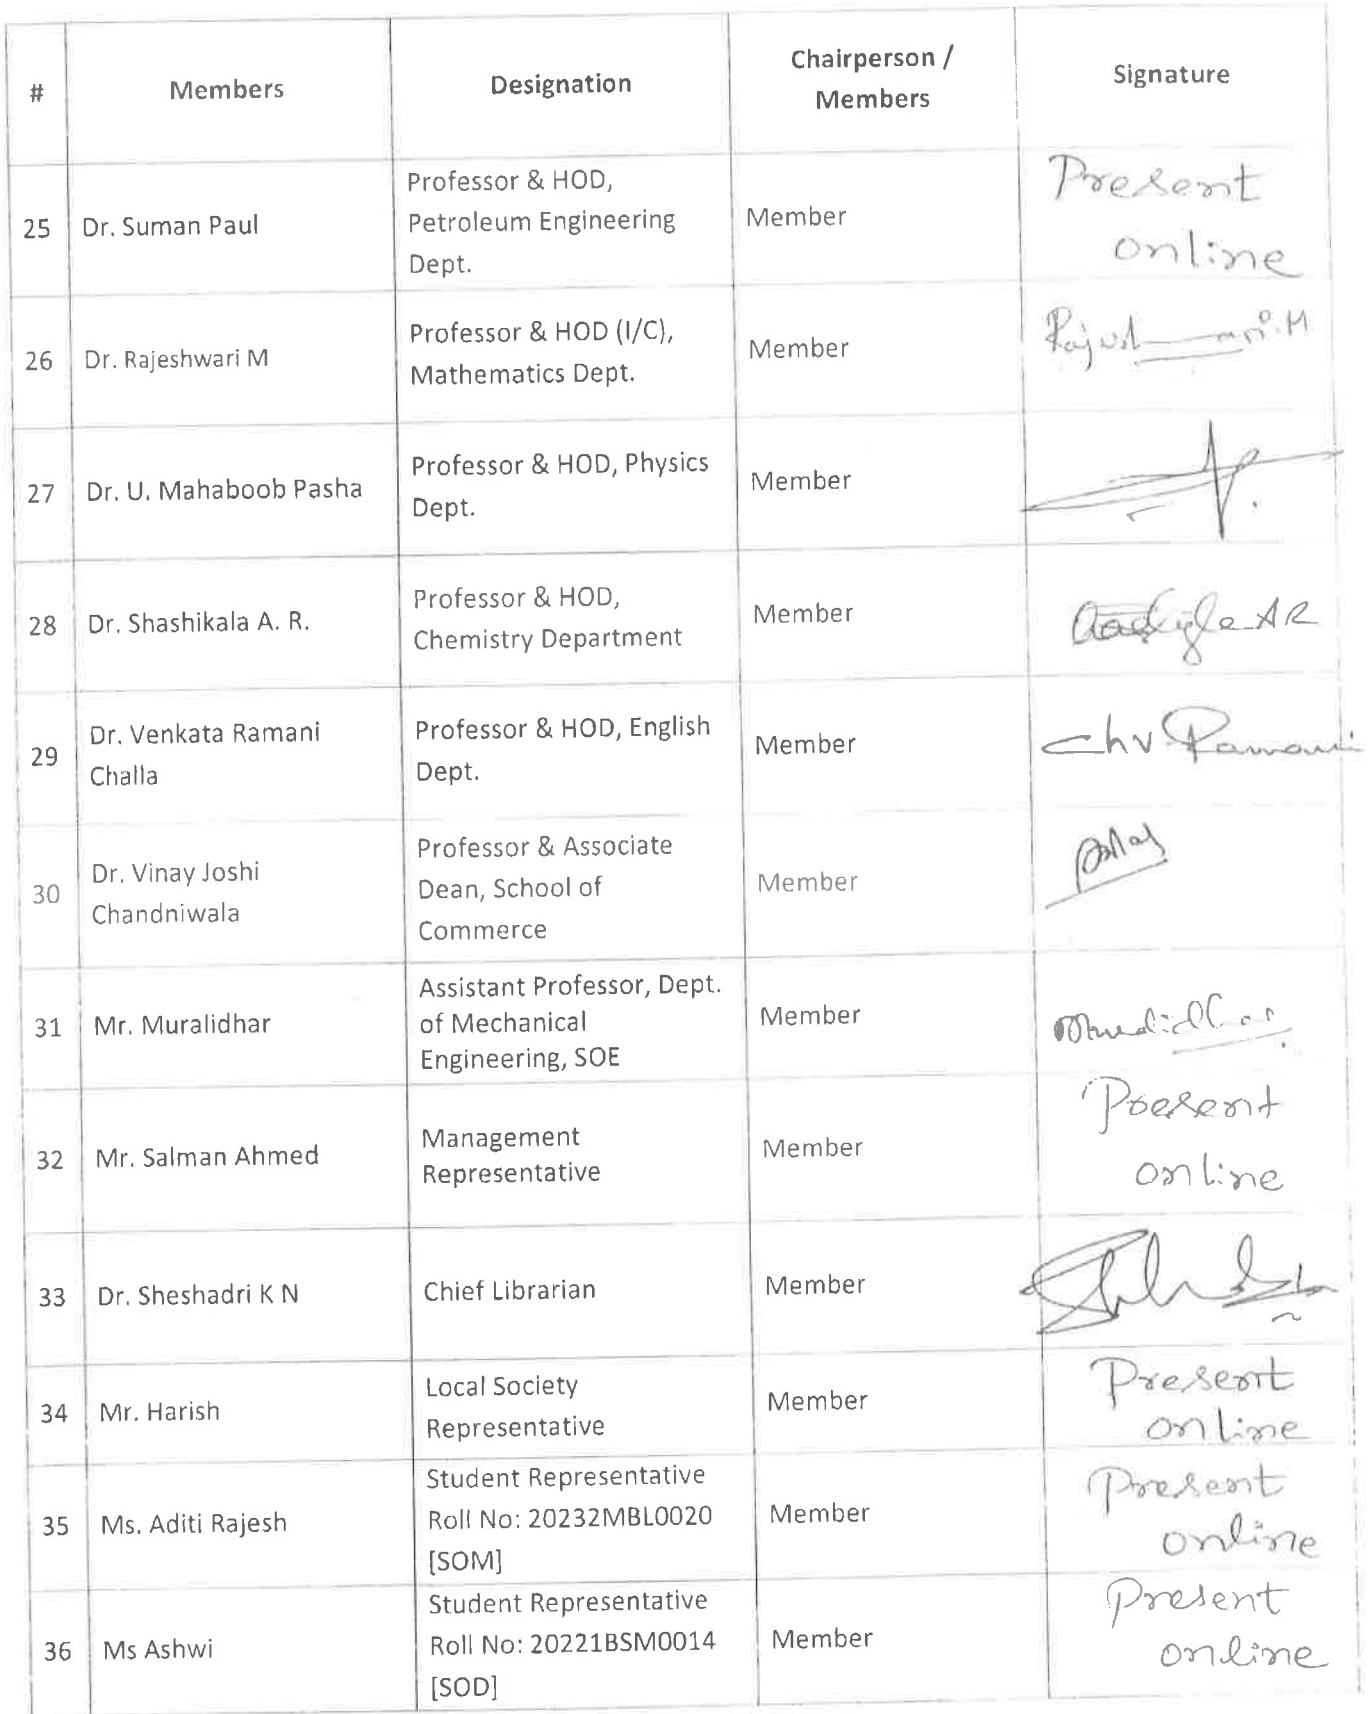 # Members Designation Chairperson / Members Signature
25 Dr. Suman Paul Professor & HOD, Petroleum Engineering Dept. Member Present online
26 Dr. Rajeshwari M Professor & HOD (I/C), Mathematics Dept. Member
27 Dr. U. Mahaboob Pasha Professor & HOD, Physics Dept. Member
28 Dr. Shashikala A. R. Professor & HOD, Chemistry Department Member
29 Dr. Venkata Ramani Challa Professor & HOD, English Dept. Member Chv Ramani
30 Dr. Vinay Joshi Chandniwala Professor & Associate Dean, School of Commerce Member
31 Mr. Muralidhar Assistant Professor, Dept. of Mechanical Engineering, SOE Member
32 Mr. Salman Ahmed Management Representative Member Present online
33 Dr. Sheshadri K N Chief Librarian Member
34 Mr. Harish Local Society Representative Member Present online
35 Ms. Aditi Rajesh Student Representative Roll No: 20232MBL0020 [SOM] Member Present online
36 Ms Ashwi Student Representative Roll No: 20221BSM0014 [SOD] Member Present online